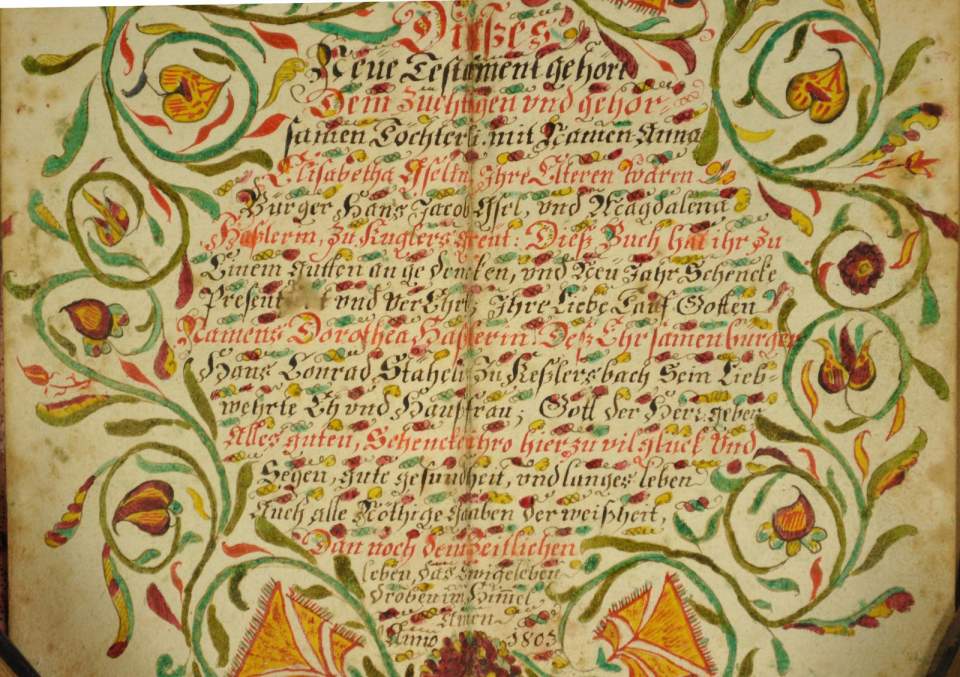 Dißes
Neüe Testament gehört
Dem Züchtigen und gehor-
samen Töchterli mit Namen Anna
Elisabetha Isselin, Ihre Elteren waren
Bürger Hans Jacob Isel, und Magdalena
Haßlerin, zu Kuglersgreut: Dieß Buch hat ihr zu
Einem gutten an ge dencken, und Neü Jahr Schencke
Presentt und Ver Ehrt, Ihre Liebe Tauf Gotten
Namens Dorothea Haßlerin: Deß Ehrsamen bürger
Hans Conrad Stäheli zu Keßlersbach Sein Lieb-
wehrte Eh und Haußfrau; Gott der Herr geben
Alles guten, Schencke ihro hier zu vil glück und
Segen, gute gesundheit, und langes leben
Auch alle Nöthige gaben der weißheit,
Dan noch dem Zeitlichen
leben, das Ewige leben
droben im Himel
Amen
Anno 1805